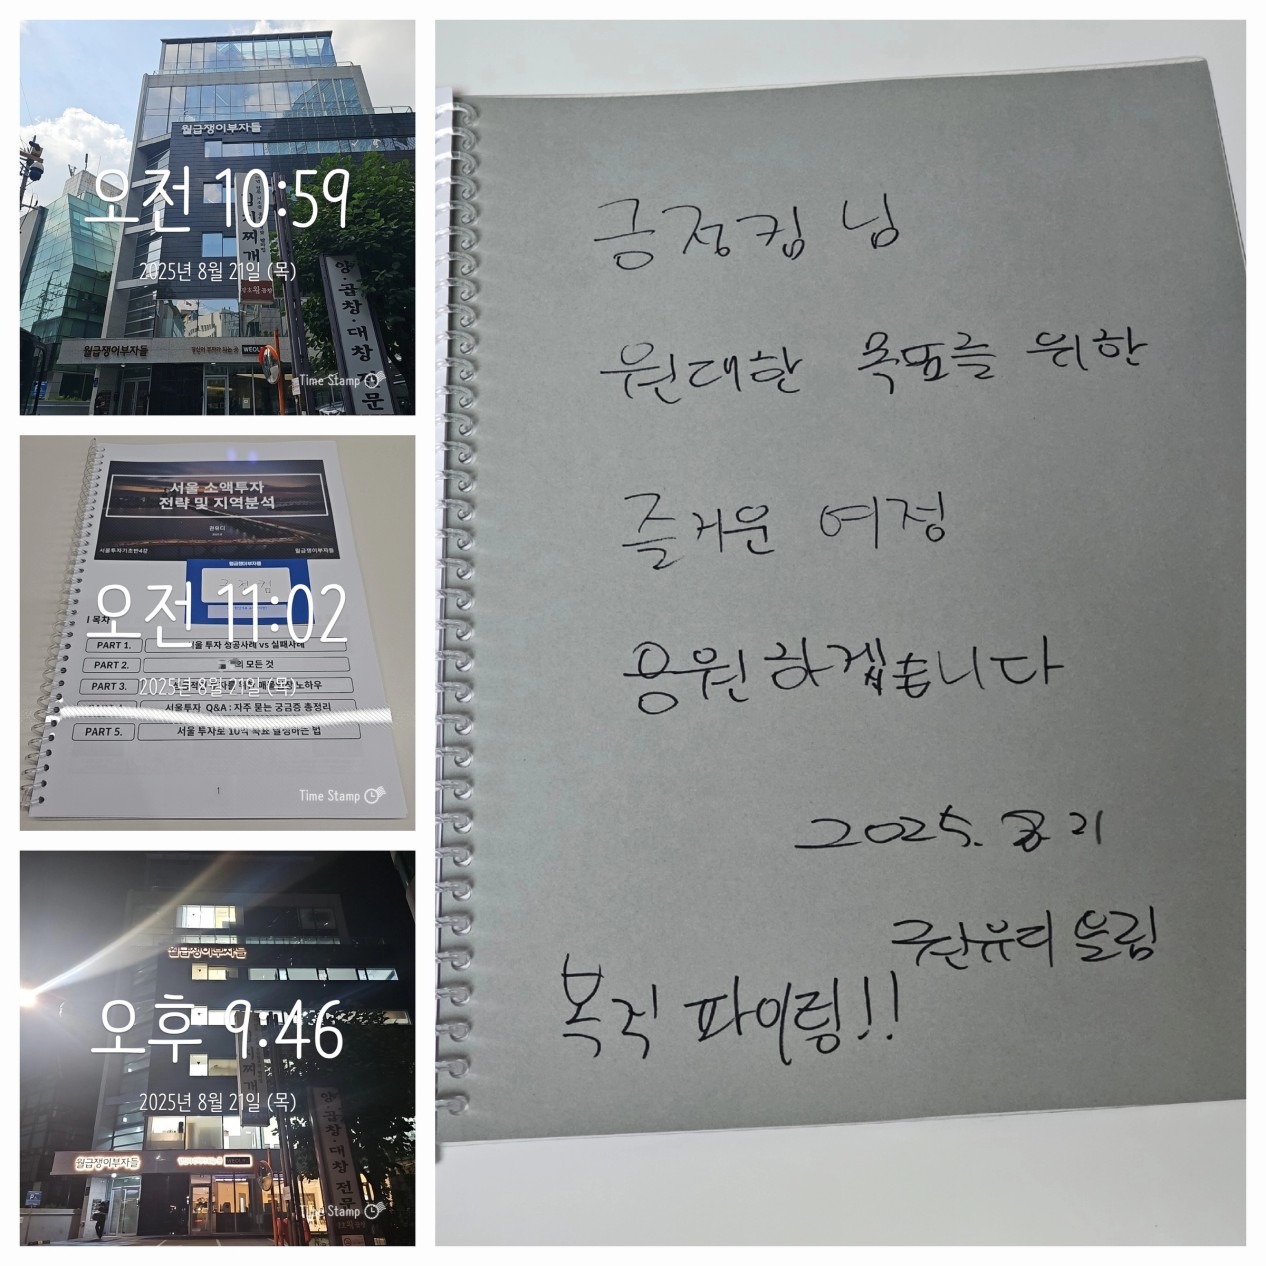 월급쟁이부자들
오전 10:59
2025년 8월 21일 (목)
찌개
양·곱창·대창 전문
월급쟁이부자들
Time Stamp
서울 소액투자
전략 및 지역분석
권유디
서울투자기초반4강
월급쟁이부자들
월급쟁이부자들
긍정킴
오전 11:02
Ⅰ 목차
PART 1. 서울 투자 성공사례 vs 실패사례
PART 2. 의 모든 것
PART 3. 노하우
2025년 8월 21일 (목)
서울투자 Q&A : 자주 묻는 궁금증 총정리
PART 5. 서울 투자로 10억 목표 달성하는 법
1
Time Stamp
월급쟁이부자들
오후 9:46
2025년 8월 21일 (목)
찌개
양·곱창·대창 전문
월급쟁이부자들
Time Stamp
긍정킴 님
원대한 목표를 위한
즐거운 여정
응원하겠습니다
2025. 8. 21
드림
복직 파이링!!